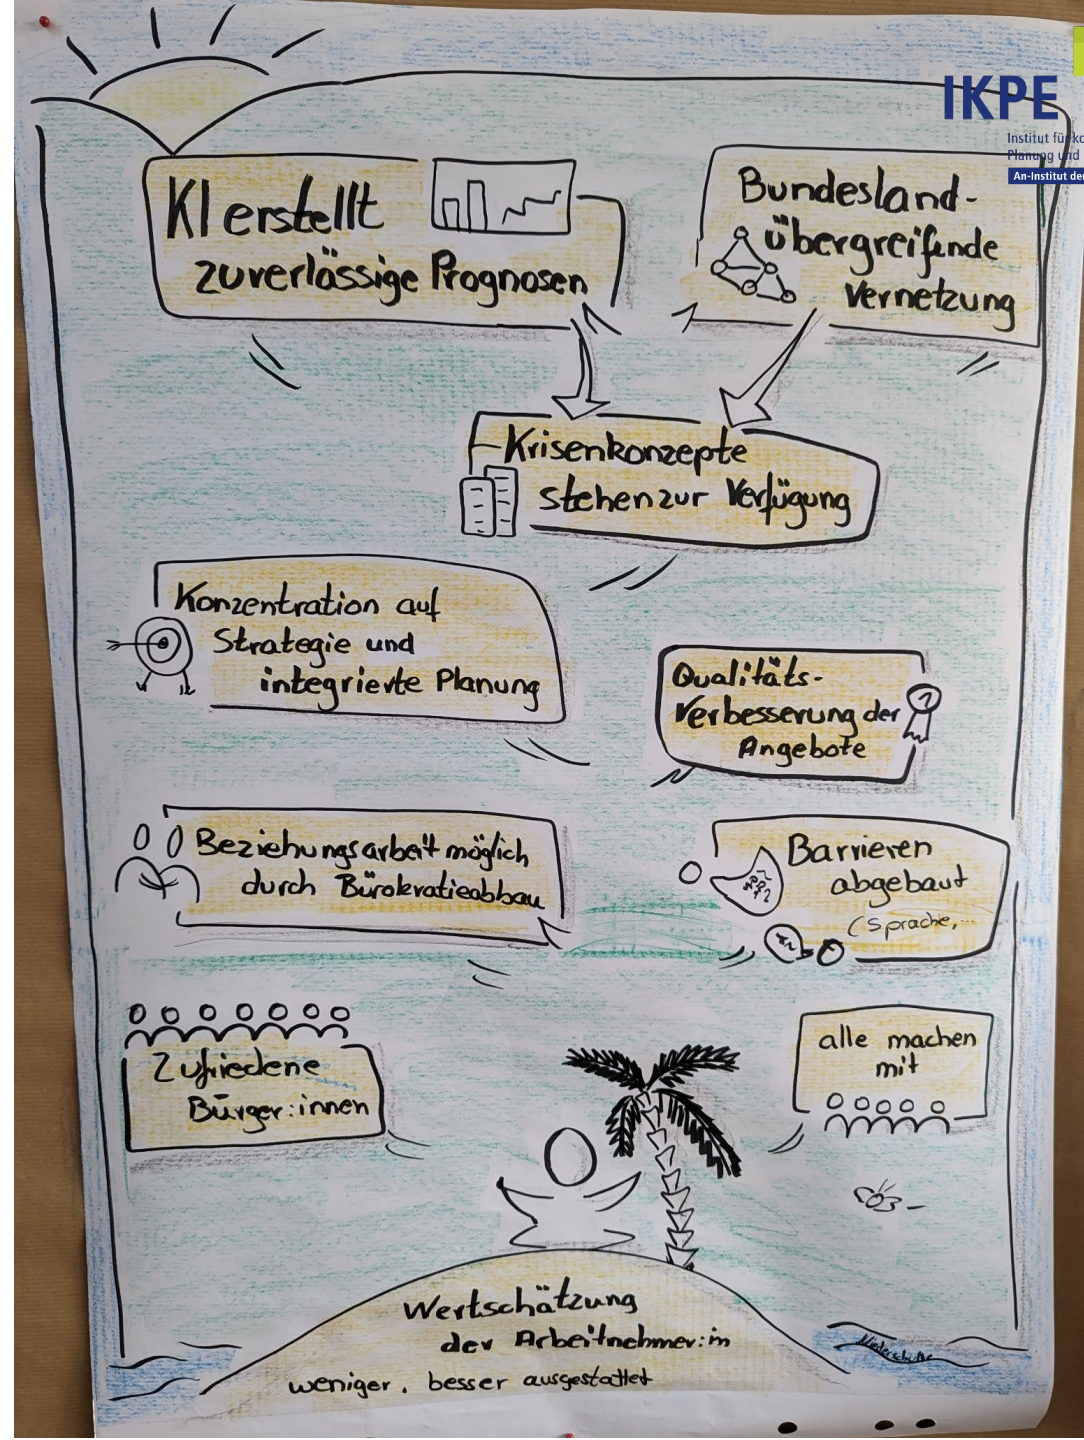 IKPE
Institut für ko
Planung und
An-Institut der
KI erstellt
zuverlässige Prognosen
Bundesland-
übergreifende
Vernetzung
Krisenkonzepte
stehen zur Verfügung
Konzentration auf
Strategie und
integrierte Planung
Qualitäts-
Verbesserung der
Angebote
1
Beziehungsarbeit möglich
durch Bürokratieabbau
Barrieren
abgebaut
(Sprache,...
Zufriedene
Bürger:innen
alle machen
mit
Wertschätzung
der Arbeitnehmer:in
weniger, besser ausgestattet